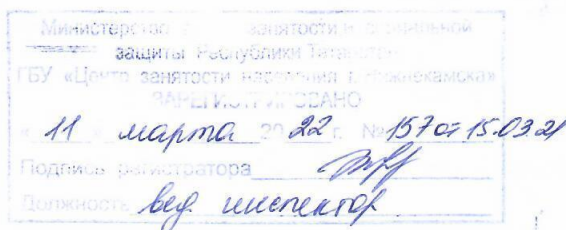 Министерство занятости и социальной
защиты Республики Татарстан
ГБУ «Центр занятости населения г. Нижнекамска»
ЗАРЕГИСТРИРОВАНО
« 11 » марта 20 22 г. № 157 от 15.03.21
Подпись регистратора
Должность вед. инспектор